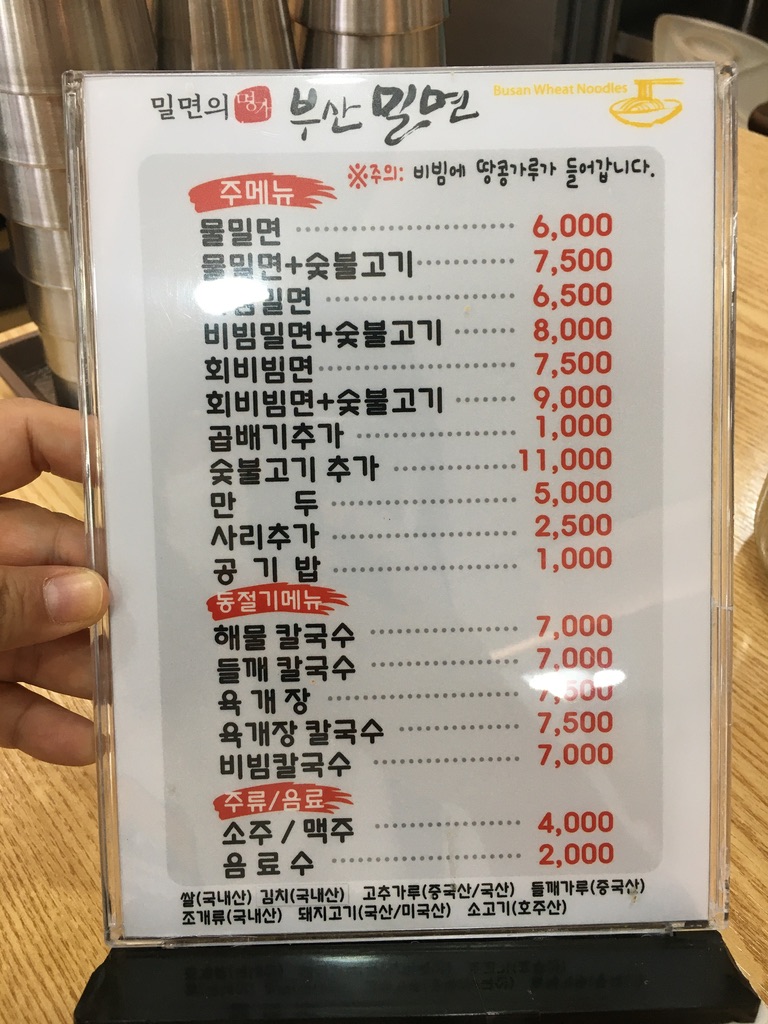 밀면의 명가 부산 밀면 Busan Wheat Noodles
※주의: 비빔에 땅콩가루가 들어갑니다.
주메뉴
물밀면 6,000
물밀면+숯불고기 7,500
밀면 6,500
비빔밀면+숯불고기 8,000
회비빔면 7,500
회비빔면+숯불고기 9,000
곱배기추가 1,000
숯불고기 추가 11,000
만 두 5,000
사리추가 2,500
공 기 밥 1,000
동절기메뉴
해물 칼국수 7,000
들깨 칼국수 7,000
육 개 장 7,500
육개장 칼국수 7,500
비빔칼국수 7,000
주류/음료
소주 / 맥주 4,000
음 료 수 2,000
쌀(국내산) 김치(국내산) 고추가루(중국산/국산) 들깨가루(중국산)
조개류(국내산) 돼지고기(국산/미국산) 소고기(호주산)